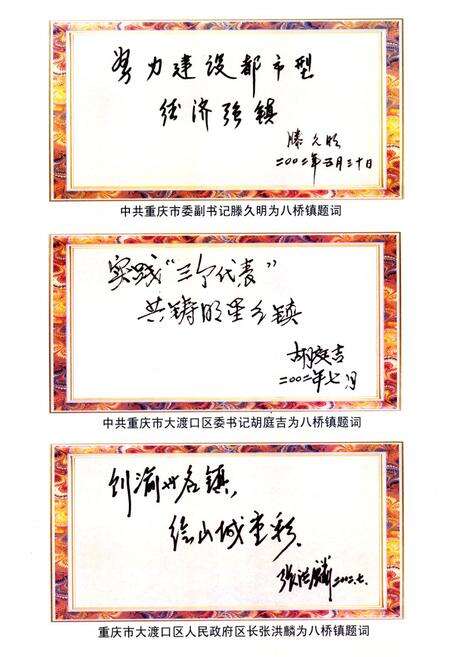 努力建设都市型
经济强镇
滕久明
二00二年五月三十日
中共重庆市委副书记滕久明为八桥镇题词
实践“三个代表”
共铸明星乡镇
胡庭吉
二00二年七月
中共重庆市大渡口区委书记胡庭吉为八桥镇题词
创渝州名镇,
绘山城重彩.
张洪麟 2002.七.
重庆市大渡口区人民政府区长张洪麟为八桥镇题词